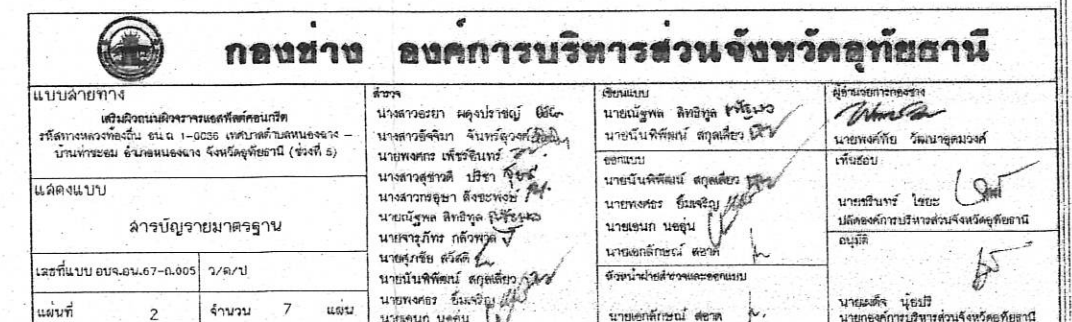 กองช่าง องค์การบริหารส่วนจังหวัดอุทัยธานี
แบบสายทาง
เสริมผิวถนนผิวจราจรแอสฟัลต์คอนกรีต
รหัสทางหลวงท้องถิ่น อน.ถ 1-0036 เทศบาลตำบลหนองฉาง –
บ้านท่าชะอม อำเภอหนองฉาง จังหวัดอุทัยธานี (ช่วงที่ 5)
แสดงแบบ
สารบัญรายมาตรฐาน
เลขที่แบบ อบจ.อน.67-ถ.005 ว/ด/ป
แผ่นที่ 2 จำนวน 7 แผ่น
สำรวจ
นางสาวอรยา ผดุงปราชญ์
นางสาวอัจจิมา
นายพงศกร เพ็ชรอินทร์
นางสาวสุชาวดี ปรีชา
นางสาวกรอุษา
นายณัฐพล สิทธิทูล
นายจารุภัทร
นายศุภชัย สวัสดี
นายนันพิพัฒน์ สกุลเลี่ยว
นายพงศธร ยิ้มเจริญ
นายเอนก นอคุ่น
เขียนแบบ
นายณัฐพล สิทธิทูล
นายนันพิพัฒน์ สกุลเลี่ยว
ออกแบบ
นายนันพิพัฒน์ สกุลเลี่ยว
นายพงศธร ยิ้มเจริญ
นายเอนก นอคุ่น
นายเอกลักษณ์ สอาด
หัวหน้าฝ่ายสำรวจและออกแบบ
นายเอกลักษณ์ สอาด
ผู้อำนวยการกองช่าง
นายพงศ์ทัย วัฒนาอุดมวงศ์
เห็นชอบ
นายชรินทร์ ไชยะ
ปลัดองค์การบริหารส่วนจังหวัดอุทัยธานี
อนุมัติ
นายเผด็จ นุ้ยปรี
นายกองค์การบริหารส่วนจังหวัดอุทัยธานี